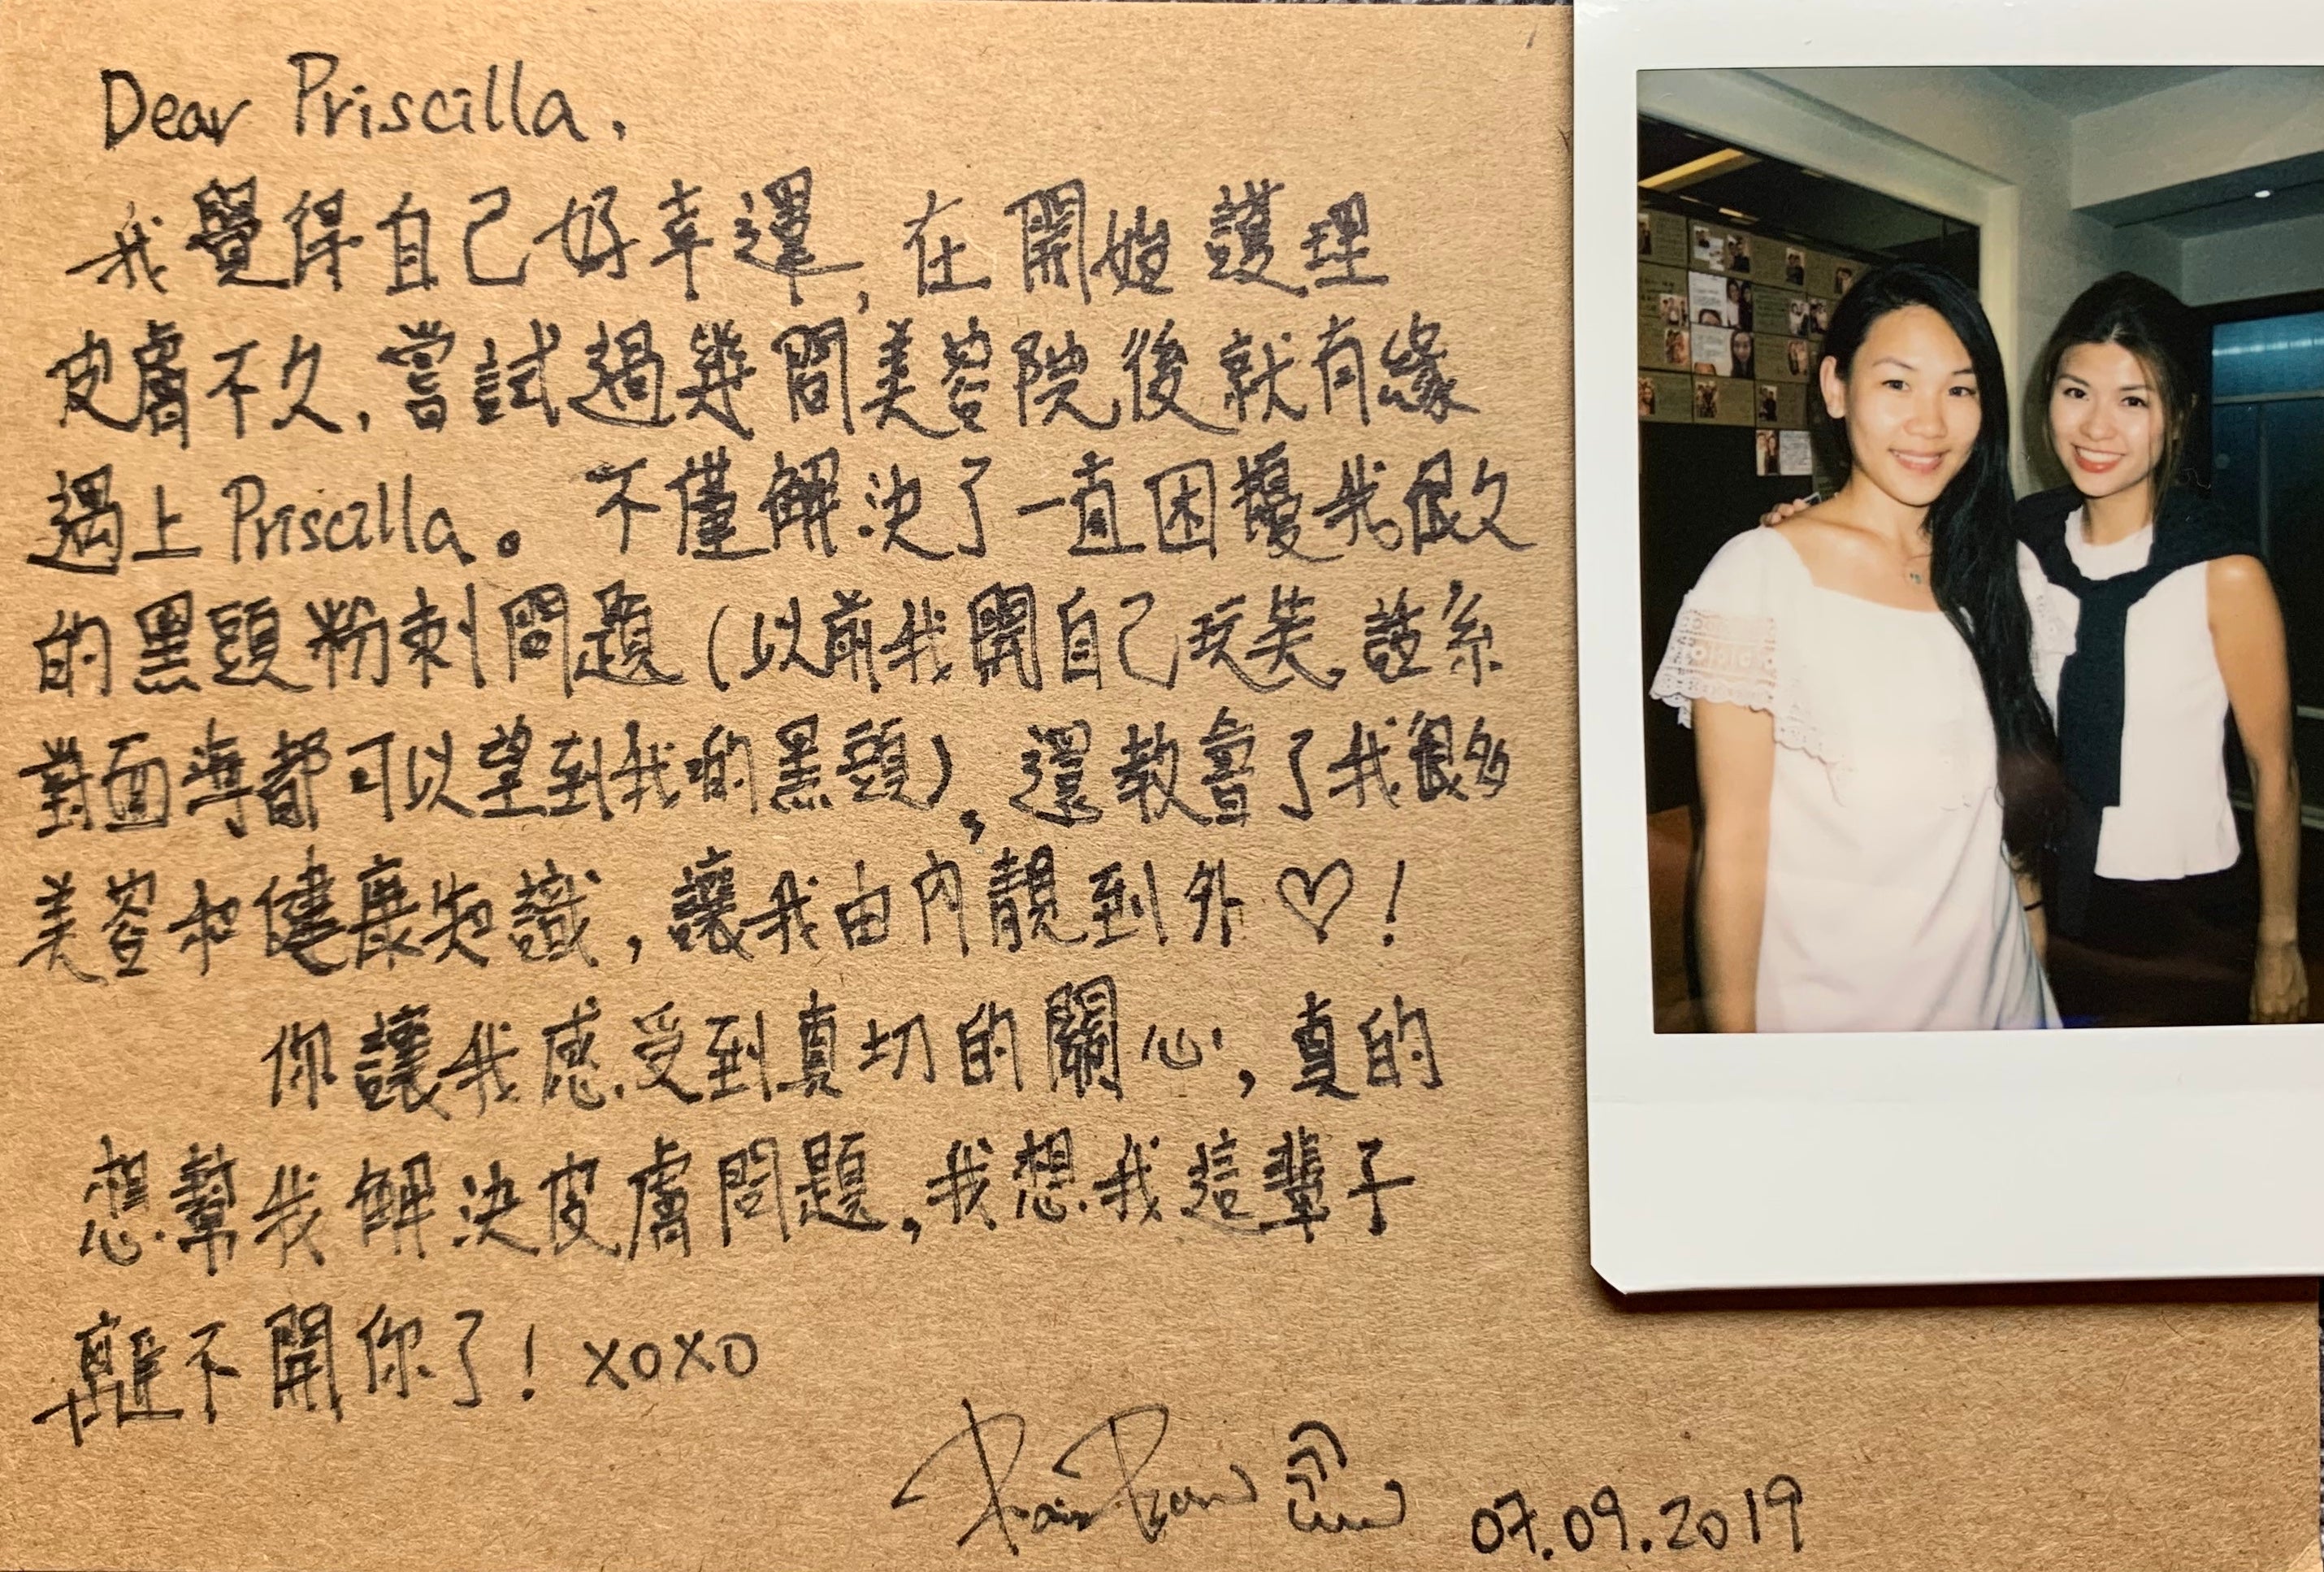 Dear Priscilla,
我覺得自己好幸運,在開始護理
皮膚不久,嘗試過幾間美容院後就有緣
遇上Priscilla。不僅解決了一直困擾我很久
的黑頭粉刺問題(以前我開自己玩笑,話系
對面海都可以望到我的黑頭),還教會了我很多
美容和健康知識,讓我由內靚到外♡!
你讓我感受到真切的關心,真的
想幫我解決皮膚問題,我想我這輩子
離不開你了!xoxo
07.09.2019